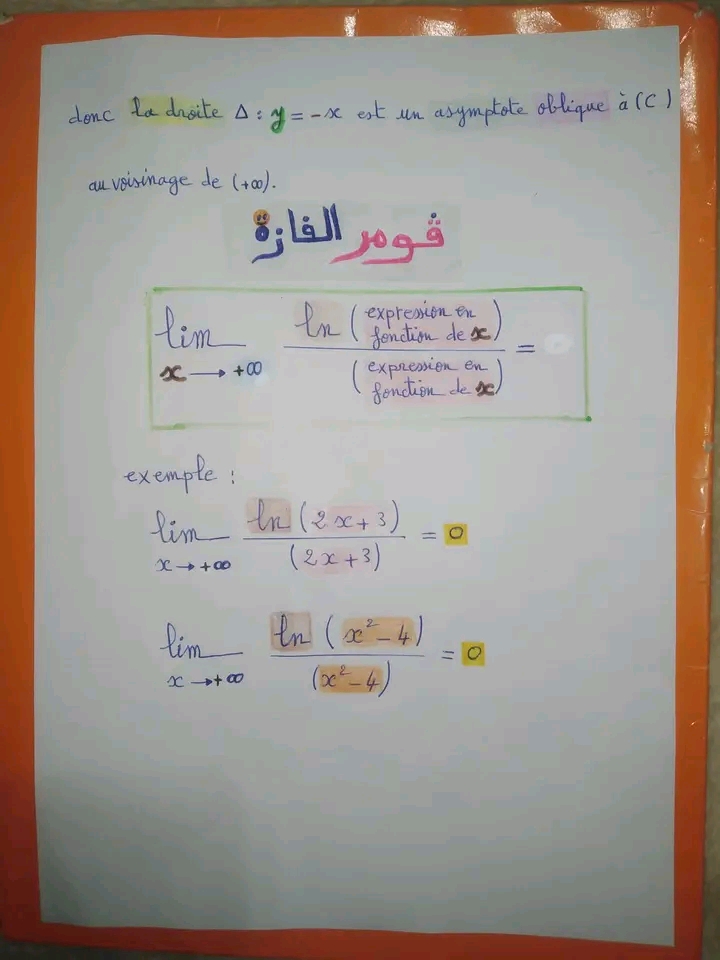 donc la droite Δ : y = -x est un asymptote oblique à (C)
au voisinage de (+∞).
ڤومر الفازة
lim x → +∞ ln (expression en fonction de x) / (expression en fonction de x) =
exemple :
lim x → +∞ ln (2x + 3) / (2x + 3) = 0
lim x → +∞ ln (x² - 4) / (x² - 4) = 0